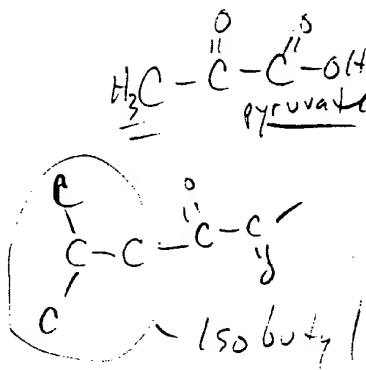 O O
H3C - C - C - OH
pyruvate
C O
C - C - C - C
C
Isobutyl